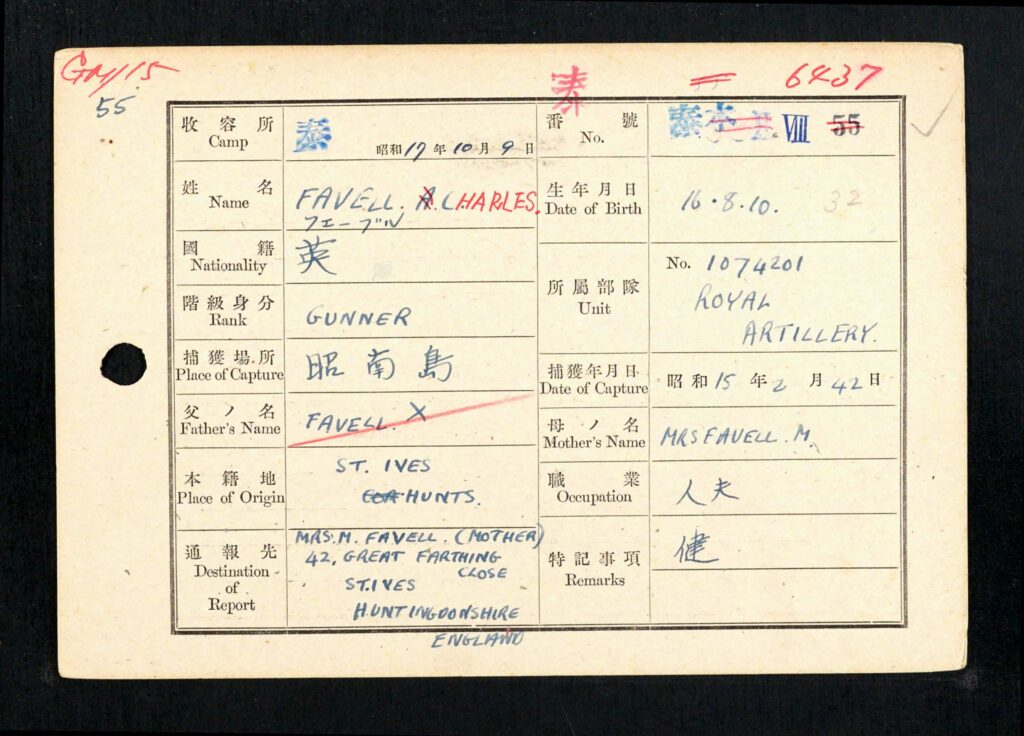 Gnr/15
55
泰
6437
收容所
Camp
泰
昭和17年10月9日
番號
No.
泰 VIII 55
姓名
Name
FAVELL. A. CHARLES.
フェーブル
生年月日
Date of Birth
16.8.10. 32
國籍
Nationality
英
階級身分
Rank
GUNNER
所屬部隊
Unit
No. 1074201
ROYAL
ARTILLERY.
捕獲場所
Place of Capture
昭南島
捕獲年月日
Date of Capture
昭和15年2月42日
父ノ名
Father's Name
FAVELL. X
母ノ名
Mother's Name
MRS FAVELL. M.
本籍地
Place of Origin
ST. IVES
HUNTS.
職業
Occupation
人夫
通報先
Destination
of
Report
MRS. M. FAVELL. (MOTHER)
42, GREAT FARTHING
CLOSE
ST. IVES
HUNTINGDONSHIRE
ENGLAND
特記事項
Remarks
健